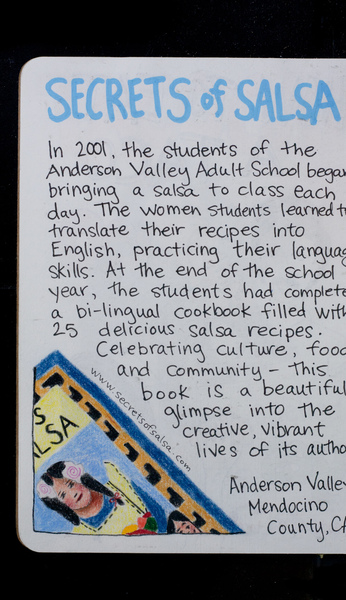 SECRETS of SALSA
In 2001, the students of the
Anderson Valley Adult School began
bringing a salsa to class each
day. The women students learned t
translate their recipes into
English, practicing their languag
skills. At the end of the school
year, the students had complete
a bi-lingual cookbook filled with
25 delicious salsa recipes.
Celebrating culture, food
and community - this
book is a beautiful
glimpse into the
creative, vibrant
lives of its autho
www.secretsofsalsa.com
S
ALSA
Anderson Valley
Mendocino
County, CA